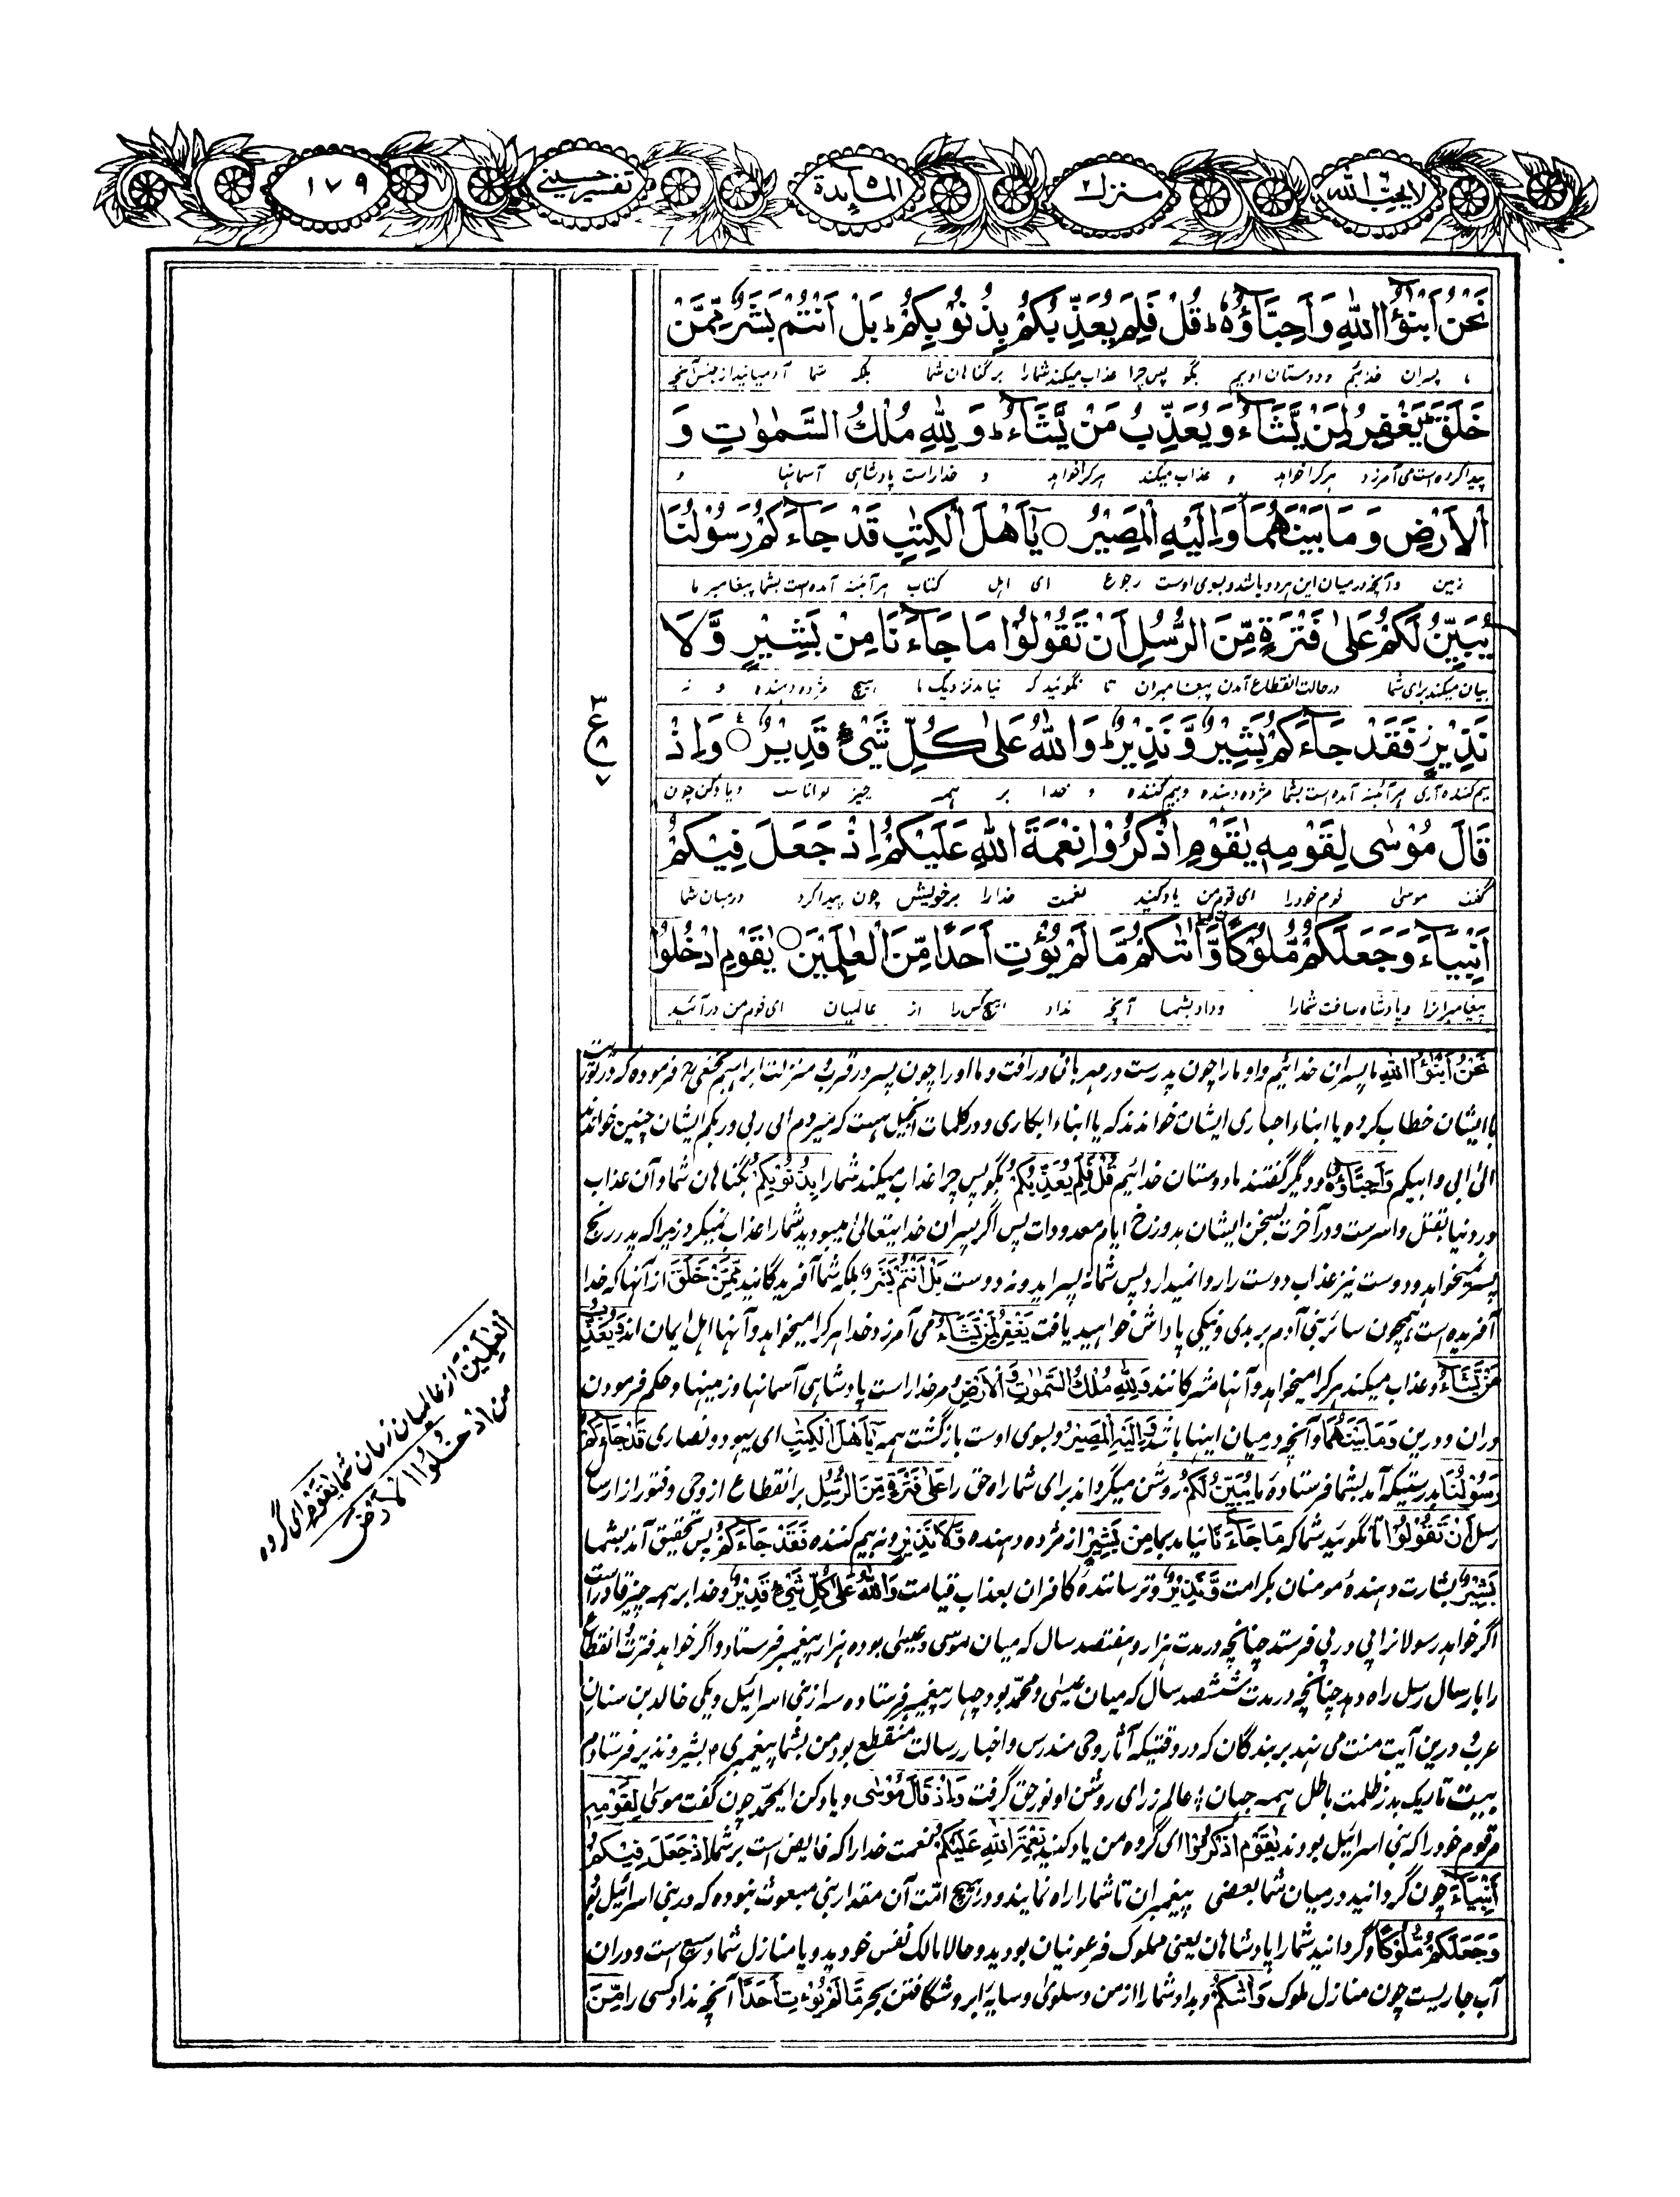 لایحب الله ٦
منزل ٢
المآئدة ٥
تفسیر حسینی
١٧٩
نَحْنُ اَبْنٰٓؤُا اللّٰهِ وَاَحِبَّآؤُهٗ ؕ قُلْ فَلِمَ یُعَذِّبُكُمْ بِذُنُوْبِكُمْ ؕ بَلْ اَنْتُمْ بَشَرٌ مِّمَّنْ
ما پسران خدائیم و دوستان اوییم بگو پس چرا عذاب میکند شما را بر گناهان شما بلکه شما آدمیانید از جنس آنچه
خَلَقَ ؕ یَغْفِرُ لِمَنْ یَّشَآءُ وَیُعَذِّبُ مَنْ یَّشَآءُ ؕ وَلِلّٰهِ مُلْكُ السَّمٰوٰتِ وَ
پیدا کرده است می آمرزد هر کرا خواهد و عذاب میکند هر کرا خواهد و خدا راست پادشاهی آسمانها و
الْاَرْضِ وَمَا بَیْنَهُمَا وَاِلَیْهِ الْمَصِیْرُ ○ یٰۤاَهْلَ الْكِتٰبِ قَدْ جَآءَكُمْ رَسُوْلُنَا
زمین و آنچه درمیان این هر دو باشد و بسوی اوست رجوع ای اهل کتاب هر آئینه آمده است بشما پیغامبر ما
یُبَیِّنُ لَكُمْ عَلٰی فَتْرَةٍ مِّنَ الرُّسُلِ اَنْ تَقُوْلُوْا مَا جَآءَنَا مِنْۢ بَشِیْرٍ وَّلَا
بیان میکند برای شما درحالت انقطاع آمدن پیغامبران تا نگوئید که نیامد نزدیک ما هیچ مژده دهنده و نه
نَذِیْرٍ ؗ فَقَدْ جَآءَكُمْ بَشِیْرٌ وَّنَذِیْرٌ ؕ وَاللّٰهُ عَلٰی كُلِّ شَیْءٍ قَدِیْرٌ ○ وَاِذْ
بیم کننده آری هر آئینه آمده است بشما مژده دهنده و بیم کننده و خدا بر همه چیز تواناست و یاد کن چون
قَالَ مُوْسٰی لِقَوْمِهٖ یٰقَوْمِ اذْكُرُوْا نِعْمَةَ اللّٰهِ عَلَیْكُمْ اِذْ جَعَلَ فِیْكُمْ
گفت موسی قوم خود را ای قوم من یاد کنید نعمت خدا را بر خویش چون پیدا کرد درمیان شما
اَنْۢبِیَآءَ وَجَعَلَكُمْ مُّلُوْكًا وَّاٰتٰىكُمْ مَّا لَمْ یُؤْتِ اَحَدًا مِّنَ الْعٰلَمِیْنَ ○ یٰقَوْمِ ادْخُلُوا
پیغامبرانرا و پادشاه ساخت شمارا و داد بشما آنچه نداد هیچ کس را از عالمیان ای قوم من درآئید
٣
ع
٧
نَحْنُ اَبْنٰٓؤُا اللّٰهِ ما پسران خدائیم و او ما را چون پدرست در مهربانی و رافت و ما او را چون پسر در قرب و منزلت ابراهیم نخعی رح فرموده که در توریت
با ایشان خطاب کرده یا ابناء احباری ایشان خواندند که یا ابناء ابکاری و در کلمات انجیل هست که میروم الی ربی و ربکم ایشان چنین خواندند
الی ابی و ابیکم وَاَحِبَّآؤُهٗ و دیگر گفتند ما دوستان خدائیم قُلْ فَلِمَ یُعَذِّبُكُمْ بگو پس چرا عذاب میکند شما را بِذُنُوْبِكُمْ بگناهان شما و آن عذاب
در دنیا بقتل و اسرست و در آخرت بسخن ایشان بدوزخ ایام معدودات پس اگر پسران خدایتعالی میبودید شما را عذاب نمیکرد زیرا که پدر رنج
پسر نمیخواهد و دوست نیز عذاب دوست را روا نمیدارد پس شما نه پسراید و نه دوست بَلْ اَنْتُمْ بَشَرٌ بلکه شما آفریدگانید مِّمَّنْ خَلَقَ از آنها که خدا
آفریده است همچون سائر بنی آدم بر بدی و نیکی پاداش خواهید یافت یَغْفِرُ لِمَنْ یَّشَآءُ می آمرزد خدا هر کرا میخواهد و آنها اهل ایمان اند وَیُعَذِّبُ
مَنْ یَّشَآءُ و عذاب میکند هر کرا میخواهد و آنها مشرکانند وَلِلّٰهِ مُلْكُ السَّمٰوٰتِ وَالْاَرْضِ و مر خدا راست پادشاهی آسمانها و زمینها و حکم فرمودن
دران و درین وَمَا بَیْنَهُمَا و آنچه درمیان اینها باشد وَاِلَیْهِ الْمَصِیْرُ و بسوی اوست بازگشت همه یٰۤاَهْلَ الْكِتٰبِ ای یهود و نصاری قَدْ جَآءَكُمْ
رَسُوْلُنَا بدرستیکه آمد بشما فرستاده ما یُبَیِّنُ لَكُمْ روشن میگرداند برای شما راه حق را عَلٰی فَتْرَةٍ مِّنَ الرُّسُلِ بر انقطاع از وحی و فتور از ارسال
رسل اَنْ تَقُوْلُوْا تا نگوئید شما که مَا جَآءَنَا نیامد بما مِنْۢ بَشِیْرٍ از مژده دهنده وَّلَا نَذِیْرٍ و نه بیم کننده فَقَدْ جَآءَكُمْ پس تحقیق آمد بشما
بَشِیْرٌ بشارت دهندهٔ مومنان بکرامت وَّنَذِیْرٌ و ترسانندهٔ کافران بعذاب قیامت وَاللّٰهُ عَلٰی كُلِّ شَیْءٍ قَدِیْرٌ و خدا بر همه چیز قادر است
اگر خواهد رسولانرا پی در پی فرستد چنانچه در مدت هزار و هفتصد سال که میان موسی و عیسی بوده هزار پیغمبر فرستاد و اگر خواهد فترت و انقطاع
را بارسال رسل راه دهد چنانچه در مدت ششصد سال که میان عیسی و محمد بود چهار پیغمبر فرستاده سه از بنی اسرائیل و یکی خالد بن سنان
عرب و درین آیت منت می نهد بر بندگان که در وقتیکه آثار وحی مندرس و اخبار رسالت منقطع بود من بشما پیغمبری م بشیر و نذیر فرستادم
بیت تاریک بد ز ظلمت باطل همه جهان ؛ عالم ز رای روشن او نور حق گرفت وَاِذْ قَالَ مُوْسٰی و یاد کن ای محمد چون گفت موسی لِقَوْمِهٖ
مر قوم خود را که بنی اسرائیل بودند یٰقَوْمِ اذْكُرُوْا ای گروه من یاد کنید نِعْمَةَ اللّٰهِ عَلَیْكُمْ نعمت خدا را که فائض است بر شما اِذْ جَعَلَ فِیْكُمْ
اَنْۢبِیَآءَ چون گردانید درمیان شما بعضی پیغمبران تا شما را راه نمایند و در هیچ امت آن مقدار نبی مبعوث نبوده که در بنی اسرائیل بود
وَجَعَلَكُمْ مُّلُوْكًا و گردانید شما را پادشاهان یعنی مملوک فرعونیان بودید و حالا مالک نفس خودید و یا منازل شما وسیع است و دران
آب جاریست چون منازل ملوک وَاٰتٰىكُمْ و بداد شما را از من و سلوی و سایهٔ ابر و شگافتن بحر مَّا لَمْ یُؤْتِ اَحَدًا آنچه نداد کسی را مِّنَ
الْعٰلَمِیْنَ از عالمیان زمان شما یٰقَوْمِ ای گروه
من ادْخُلُوا الْاَرْضَ